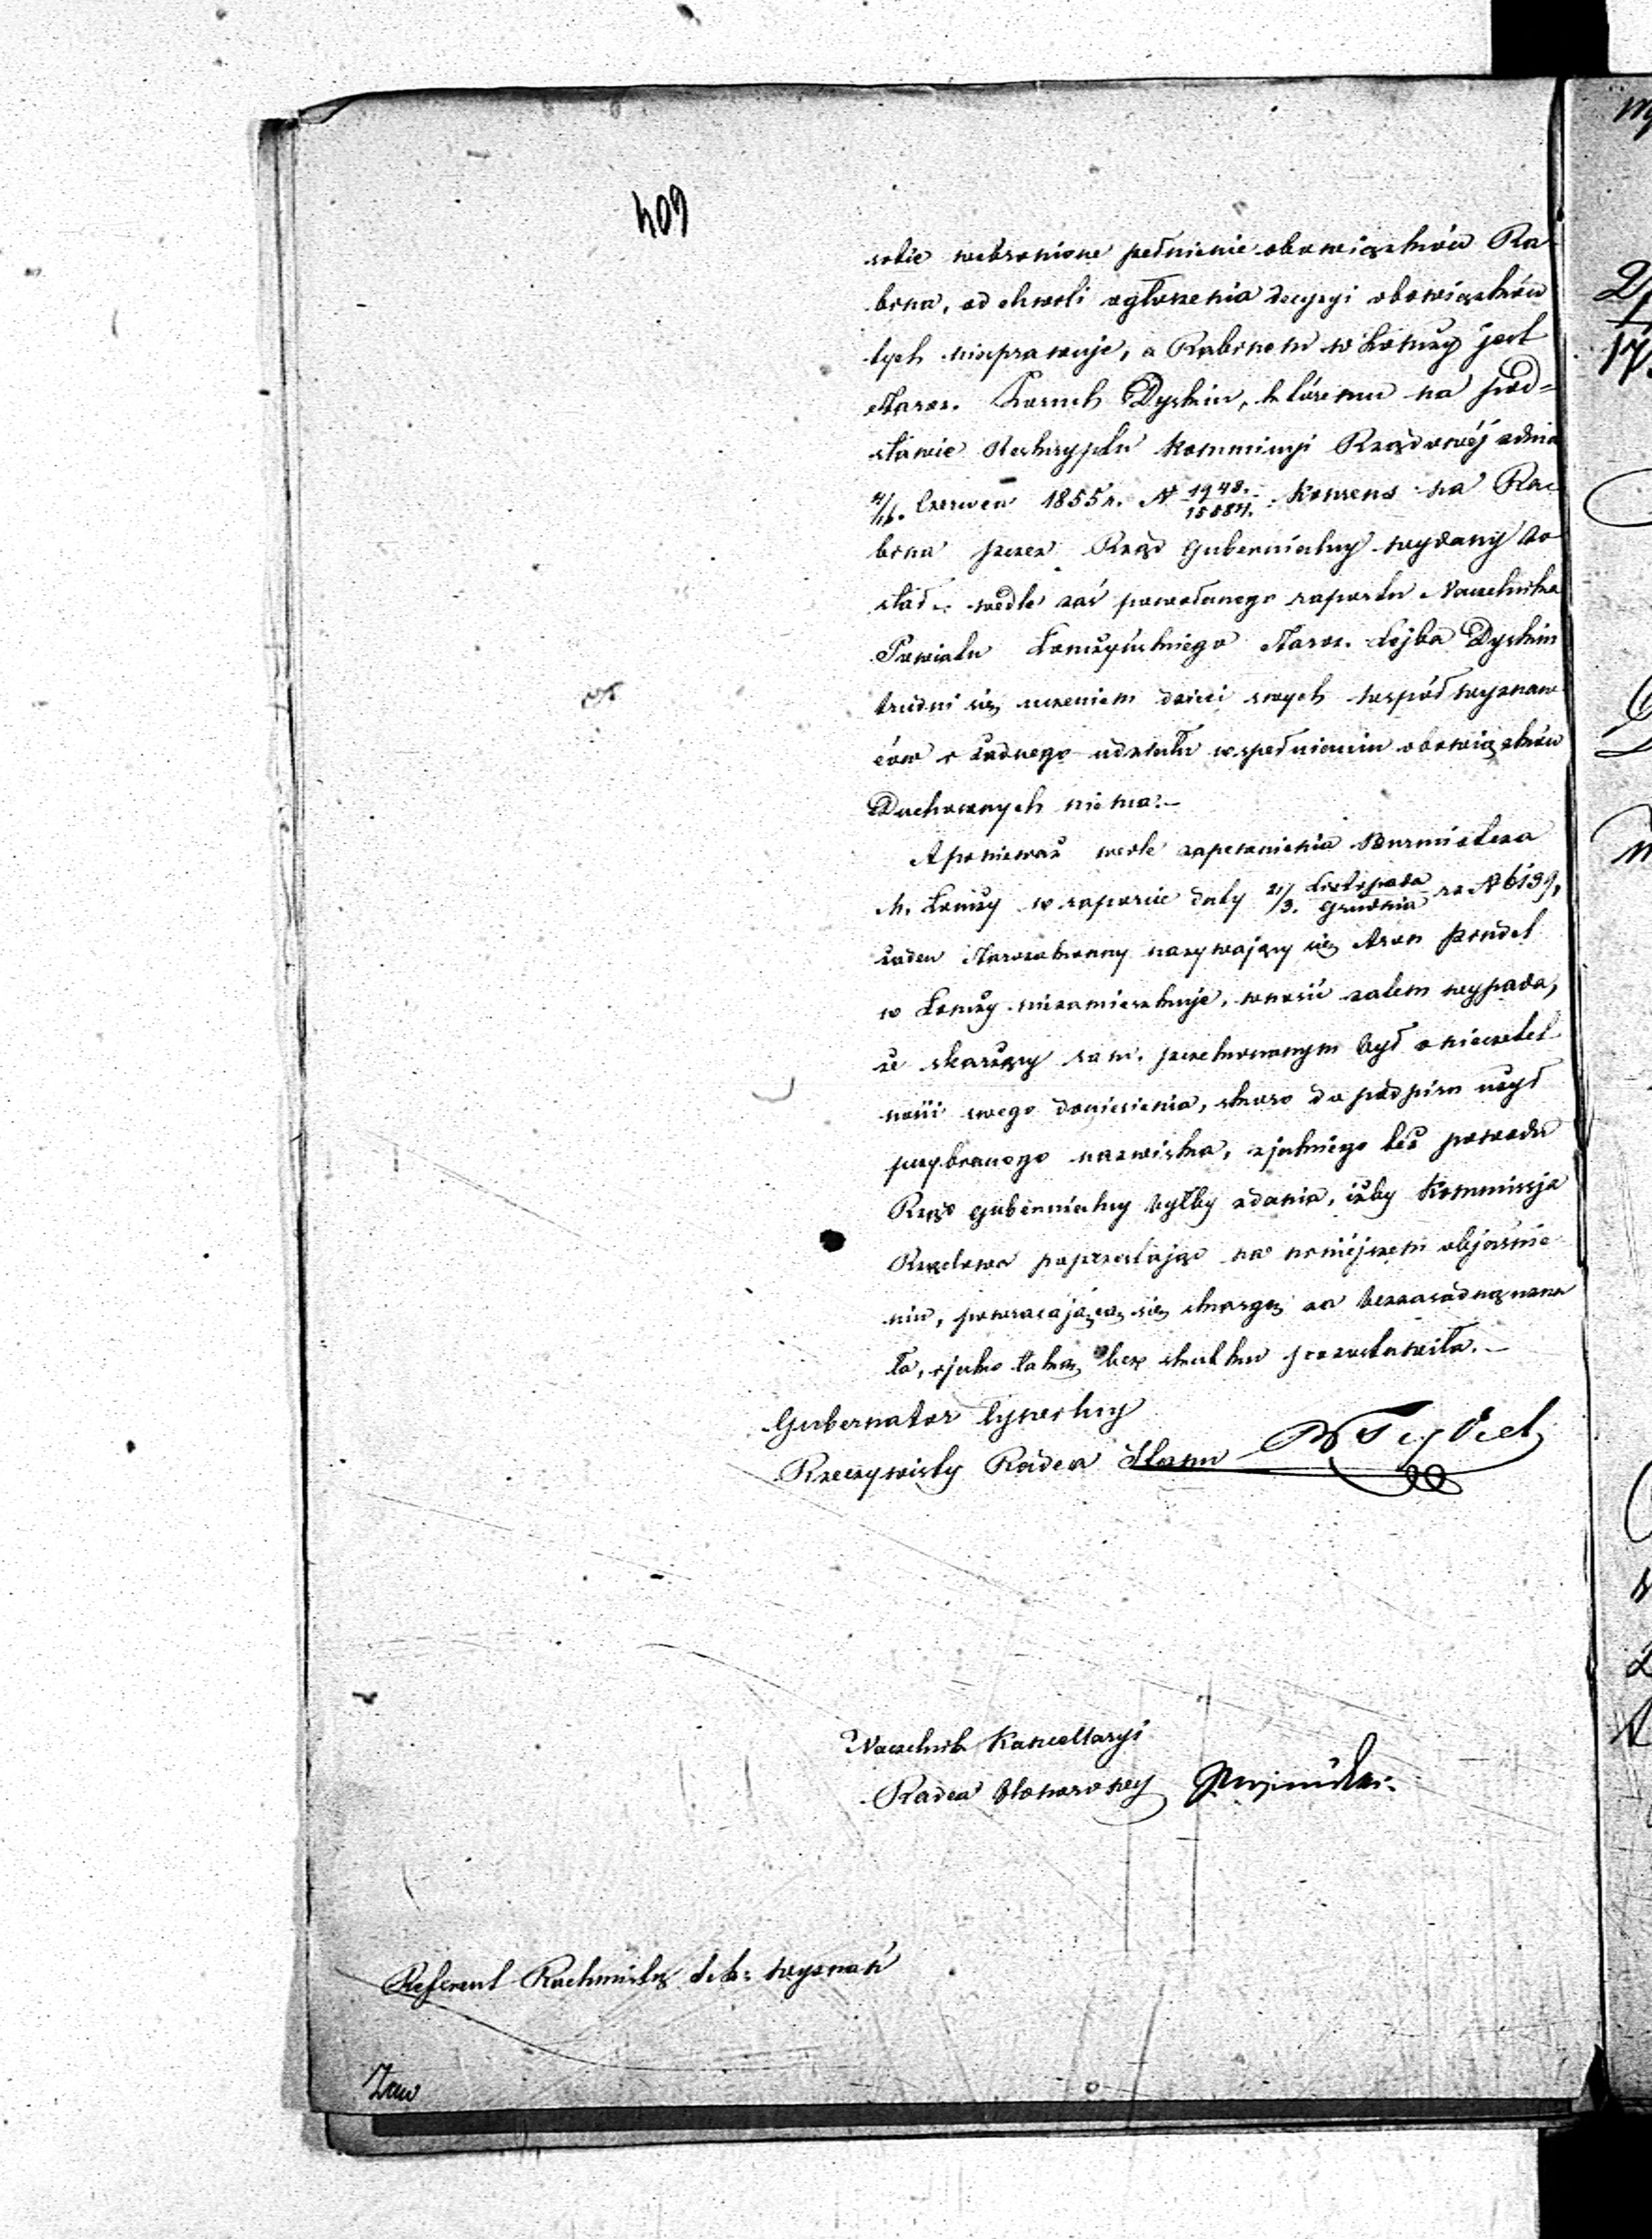 409
sobie wzbronione pełnienie obowiązków Ra
bina, od chwili ogłoszenia decyzyi obowiązków
tych niesprawuje, a Rabinem w Łomży jest
Staroz. Boruch Dyskin, któremu na pod=
stawie Reskryptu Kommissyi Rządowéj z dnia
4/16. Czerwca 1855 r. N 1948./15084. Konsens na Ra
bina przez Rząd Gubernialny wydany zo
stał: wedle zaś powołanego raportu Naczelnika
Powiatu Łomżyńskiego Staroz. Lejba Dyskin
trudni się uczeniem dzieci swych współwyznaw
ców i żadnego udziału w pełnieniu obowiązków
Duchownych niema.–
A ponieważ wedle zapewnienia Burmistrza
M. Łomży w raporcie daty 21/3. Listopada/Grudnia za N 6139,
żaden Starozakonny nazywający się Aron Pendel
w Łomży niezamieszkuje, wnosić zatem wypada,
że skarżący sam przekonanym był o nierzetel
ności swego doniesienia, skoro do podpisu użył
przybranego nazwiska, z jakiego też powodu
Rząd Gubernialny byłby zdania, iżby Kommissja
Rządowa poprzestając na niniejszem objaśnie
niu, powracającą się skargę za bezzasadną uzna
ła, i jako taką bez skutku pozostawiła.–
Gubernator Cywilny
Rzeczywisty Radca Stanu
Naczelnik Kancellaryi
Radca Honorowy
Referent Rachmistrz Sek: wyznań
Zaw